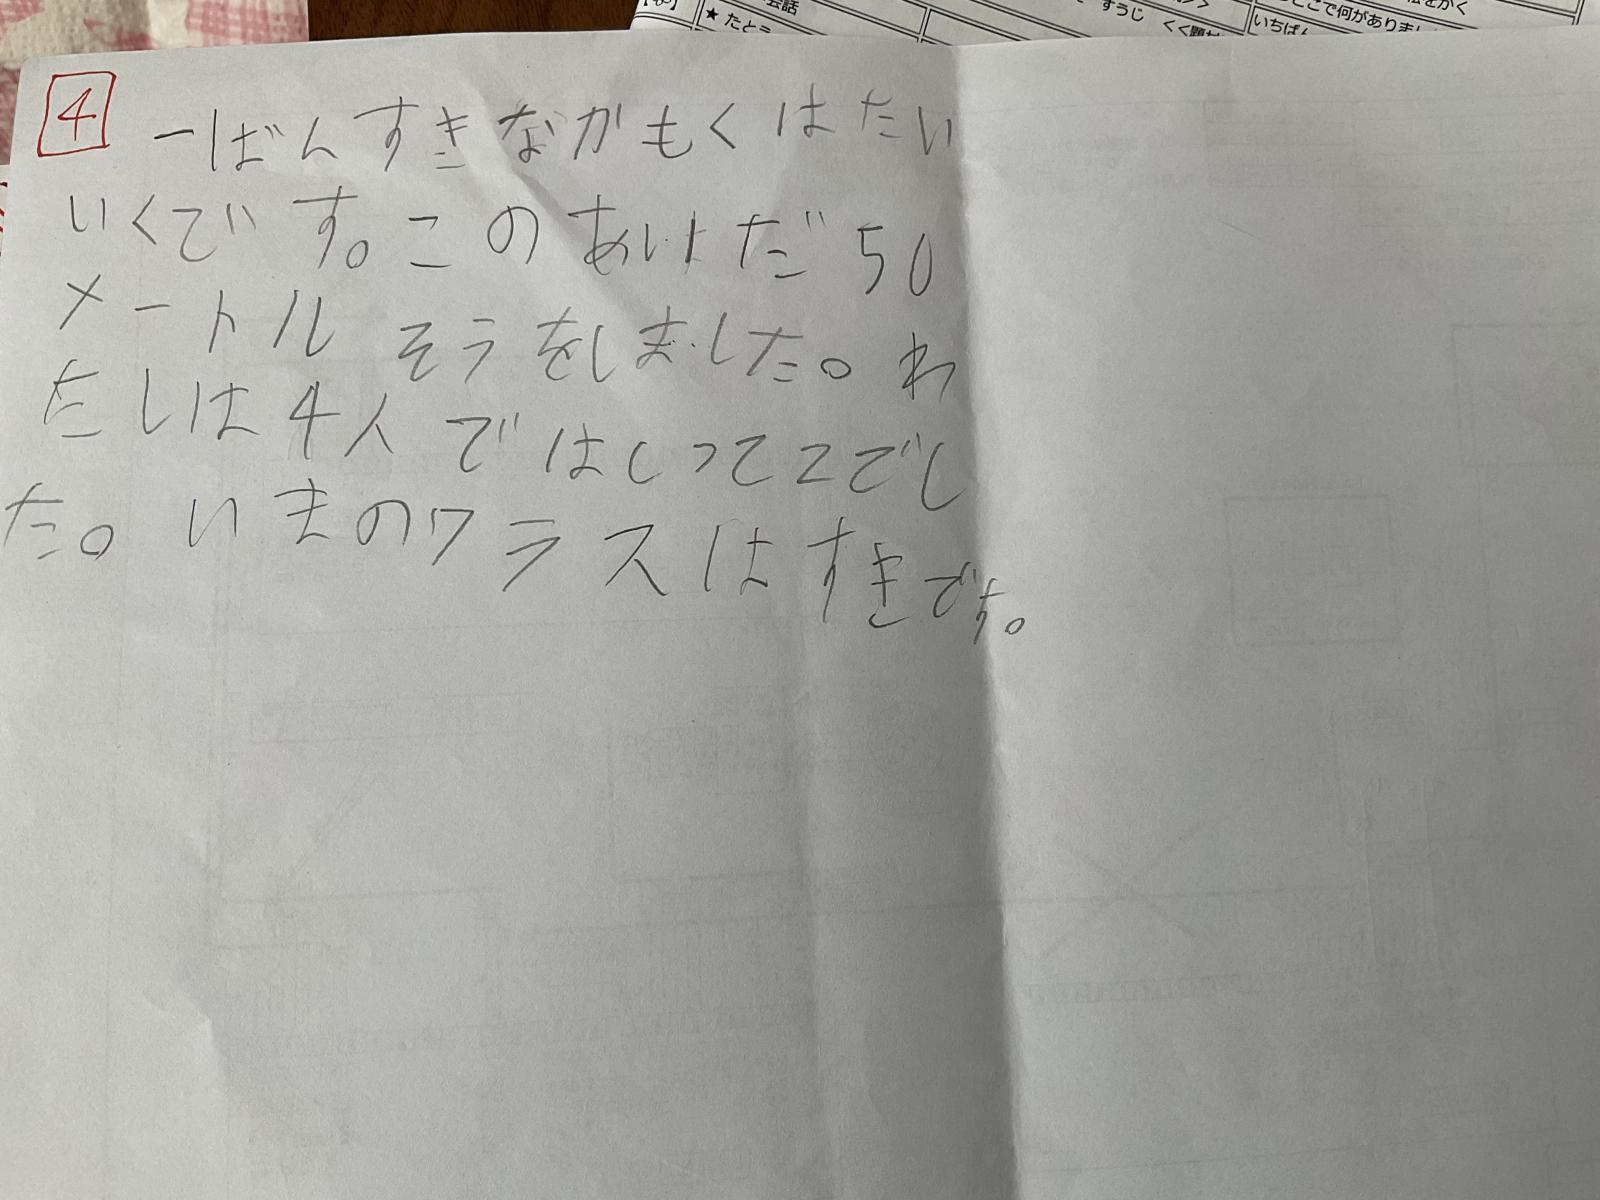 会話
★ たとう
すうじ
<<題
をかく
どこで何がありまし
いちばん
4
一ばんすきなかもくはたい
いくです。このあいトだ50
メートルそうをしました。わ
たしは4人ではしって2でし
た。いまのクラスはすきです。